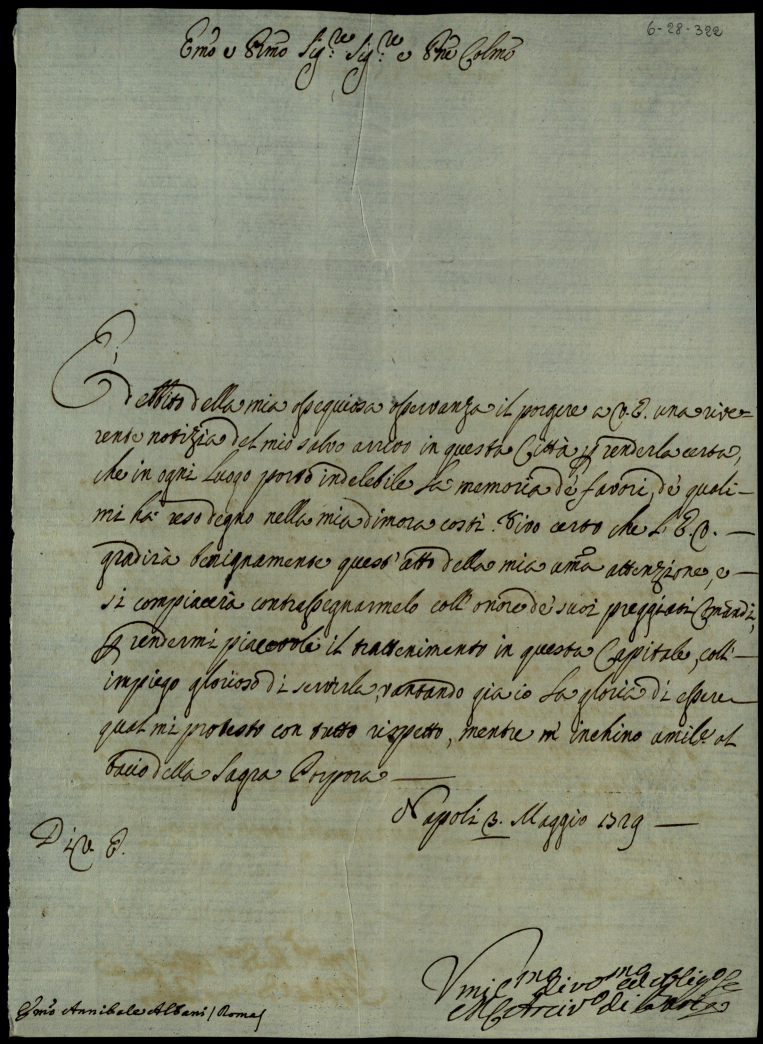 6-28-322
Emo e Rmo Sig.re Sig.re e Pne Colmo
E'
debbito della mia ossequiosa osservanza il porgere a V.E. una rive=
rente notizia del mio salvo arrivo in questa Città, p renderla certa,
che in ogni luogo porto indelebile la memoria de' favori, de' quali
mi ha' reso degno nella mia dimora costì. Vivo certo che l'E.V.
gradirà benignamente quest'atto della mia attenzione, e
si compiacerà contrassegnarmelo coll'onore de' suoi preggiati Comandi,
p rendermi piacevole il trattenimento in questa Capitale, coll'
impiego glorioso di servirla, vantando già io la gloria di essere
qual mi protesto con tutto rispetto, mentre m'inchino umile al
bacio della Sagra Porpora
Napoli 3. Maggio 1729
Di V. E.
Vmil.mo divo.mo ed obligo Se
Arcivo di
Emo Annibale Albani / Roma /